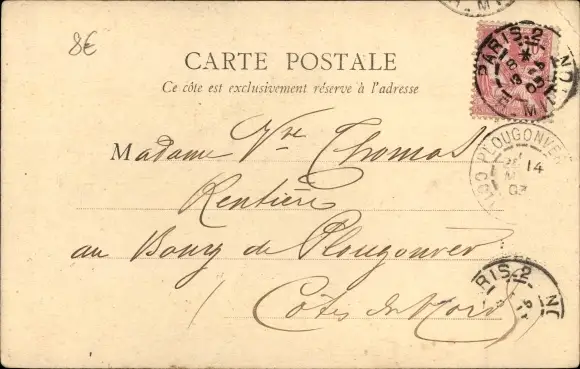 8€
CARTE POSTALE
Ce côté est exclusivement réservé à l'adresse
PARIS. 2
Madame Vve Thomas
PLOUGONVER
14
03
Rentière
au Bourg de Plougonver
Côtes du Nord
RIS. 2